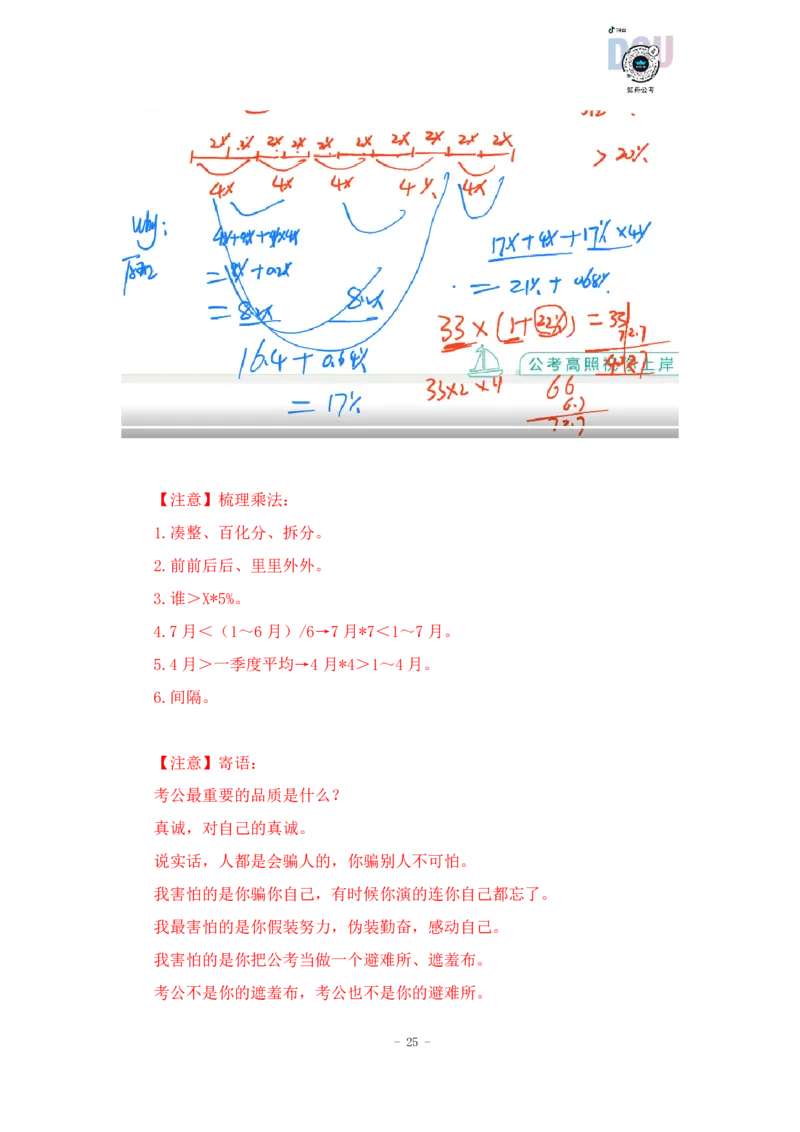 抖音
DOU
弧舟公考
2% 2% 2% 2% 2% 2% 2% 2% 2% 2%
>22%
4% 4% 4% 4% 4%
Why:
4%+4%+4%×4%
=8%+0.2%
=8.2% 8.2%
16.4+0.64%
=17%
17%+4%+17%×4%
=21%+0.68%
33×(1+22%)=33
72.7
33×2×4
66
6.7
72.7
公考高照 上岸
【注意】梳理乘法:
1.凑整、百化分、拆分。
2.前前后后、里里外外。
3.谁>X*5%。
4.7月<(1~6月)/6→7月*7<1~7月。
5.4月>一季度平均→4月*4>1~4月。
6.间隔。
【注意】寄语:
考公最重要的品质是什么?
真诚,对自己的真诚。
说实话,人都是会骗人的,你骗别人不可怕。
我害怕的是你骗你自己,有时候你演的连你自己都忘了。
我最害怕的是你假装努力,伪装勤奋,感动自己。
我害怕的是你把公考当做一个避难所、遮羞布。
考公不是你的遮羞布,考公也不是你的避难所。
- 25 -